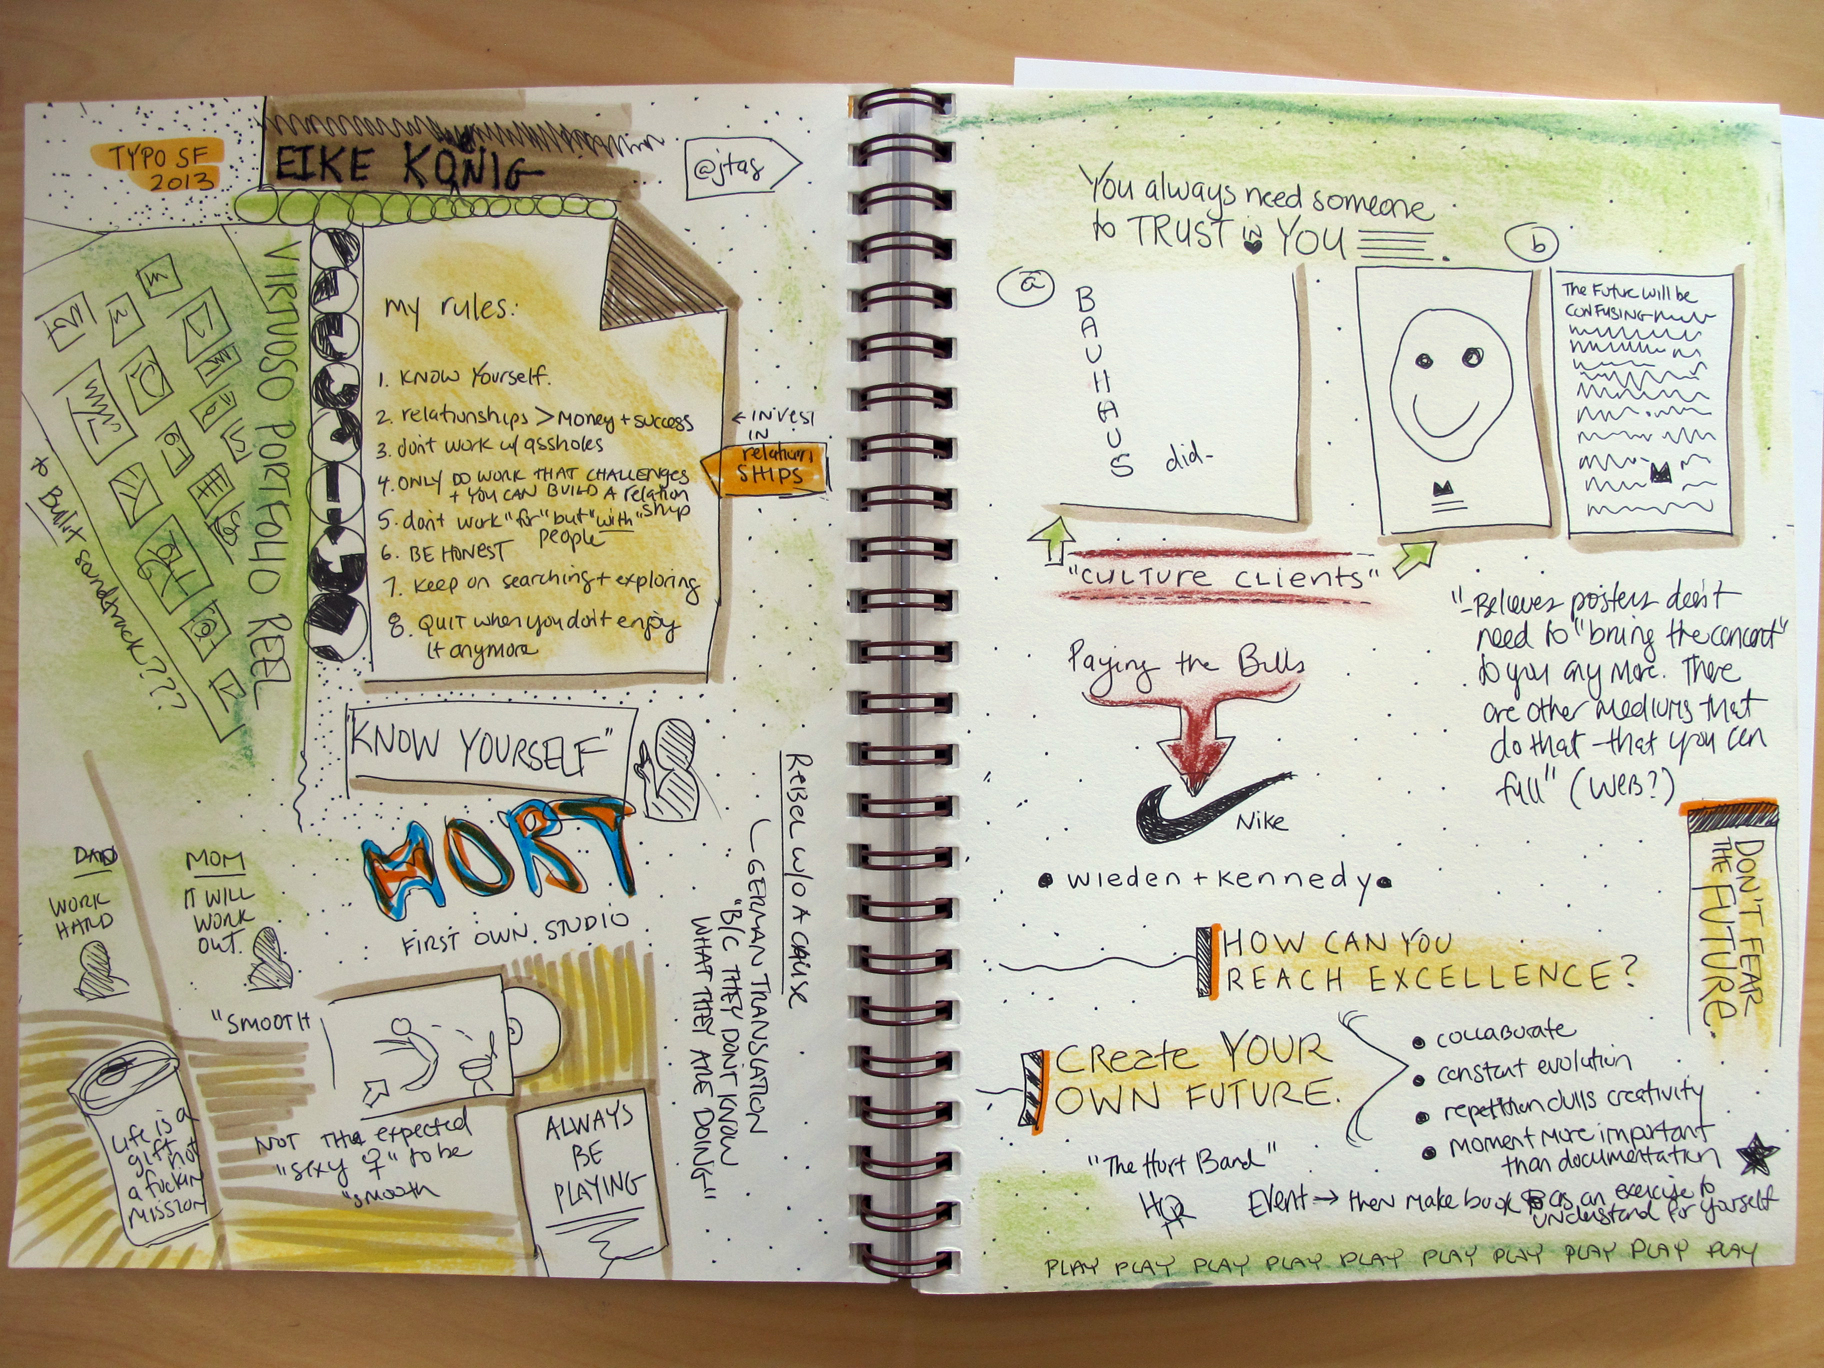 TYPO SF
2013
EIKE KÖNIG
@jtag
VIRTUOSO PORTFOLIO REEL
to Built soundtrack???
my rules:
1. KNOW Yourself.
2. relationships > money + success
3. don't work w/ assholes
4. ONLY DO WORK THAT CHALLENGES
+ YOU CAN BUILD A relation
ship
5. don't work "for" but "with"
people
6. BE HONEST
7. keep on searching + exploring
8. QUIT when you don't enjoy
it anymore
← INVEST
IN
relation
SHIPS
KNOW YOURSELF"
HORT
FIRST OWN STUDIO
DAD
WORK
HARD
MOM
IT WILL
WORK
OUT.
REBEL W/O A CAUSE
GERMAN TRANSLATION
"B/C THEY DON'T KNOW
WHAT THEY ARE DOING"
"SMOOTH
NOT THE expected
"sexy ♀" to be
"smooth
Life is a
gift not
a fuckin
mission
ALWAYS
BE
PLAYING
You always need someone
to TRUST IN YOU
a
BAUHAUS
did-
b
The Future will be
CONFUSING
"CULTURE CLIENTS"
"-Believes posters doesn't
need to "bring the concert"
to you any more. There
are other mediums that
do that - that you can
full" (WEB?)
Paying the Bills
Nike
• wieden + kennedy •
DON'T FEAR
THE FUTURE.
HOW CAN YOU
REACH EXCELLENCE?
Create YOUR
OWN FUTURE.
• collaborate
• constant evolution
• repetition dulls creativity
• moment more important
than documentation
"The Hort Band"
Event → then make book as an exercise to
understand for yourself
PLAY PLAY PLAY PLAY PLAY PLAY PLAY PLAY PLAY PLAY